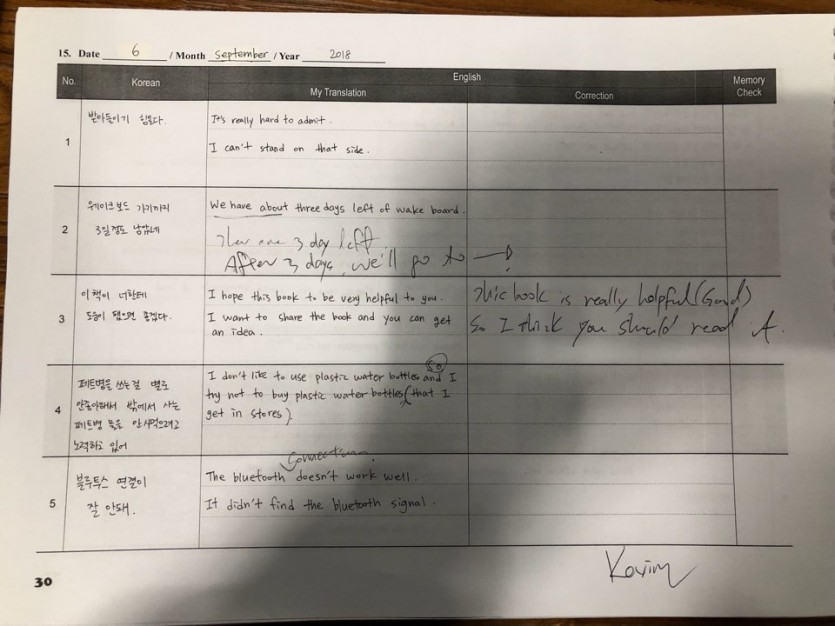 15. Date 6 / Month September / Year 2018
No. Korean English Memory Check
My Translation Correction
1
받아들이기 힘들다.
It's really hard to admit.
I can't stand on that side.
2
웨이크보드 가기까지
3일정도 남았네
We have about three days left of wake board.
3 day left
After 3 days, we'll go to →
3
이 책이 너한테
도움이 됐으면 좋겠다.
I hope this book to be very helpful to you.
I want to share the book and you can get
an idea.
This book is really helpful (Good)
So I think you should read it.
4
페트병을 쓰는걸 별로
안좋아해서 밖에서 사는
페트병 물을 안 사먹으려고
노력하고 있어
so
I don't like to use plastic water bottles and I
try not to buy plastic water bottles (that I
get in stores).
5
블루투스 연결이
잘 안돼.
connection
The bluetooth doesn't work well.
It didn't find the bluetooth signal.
30